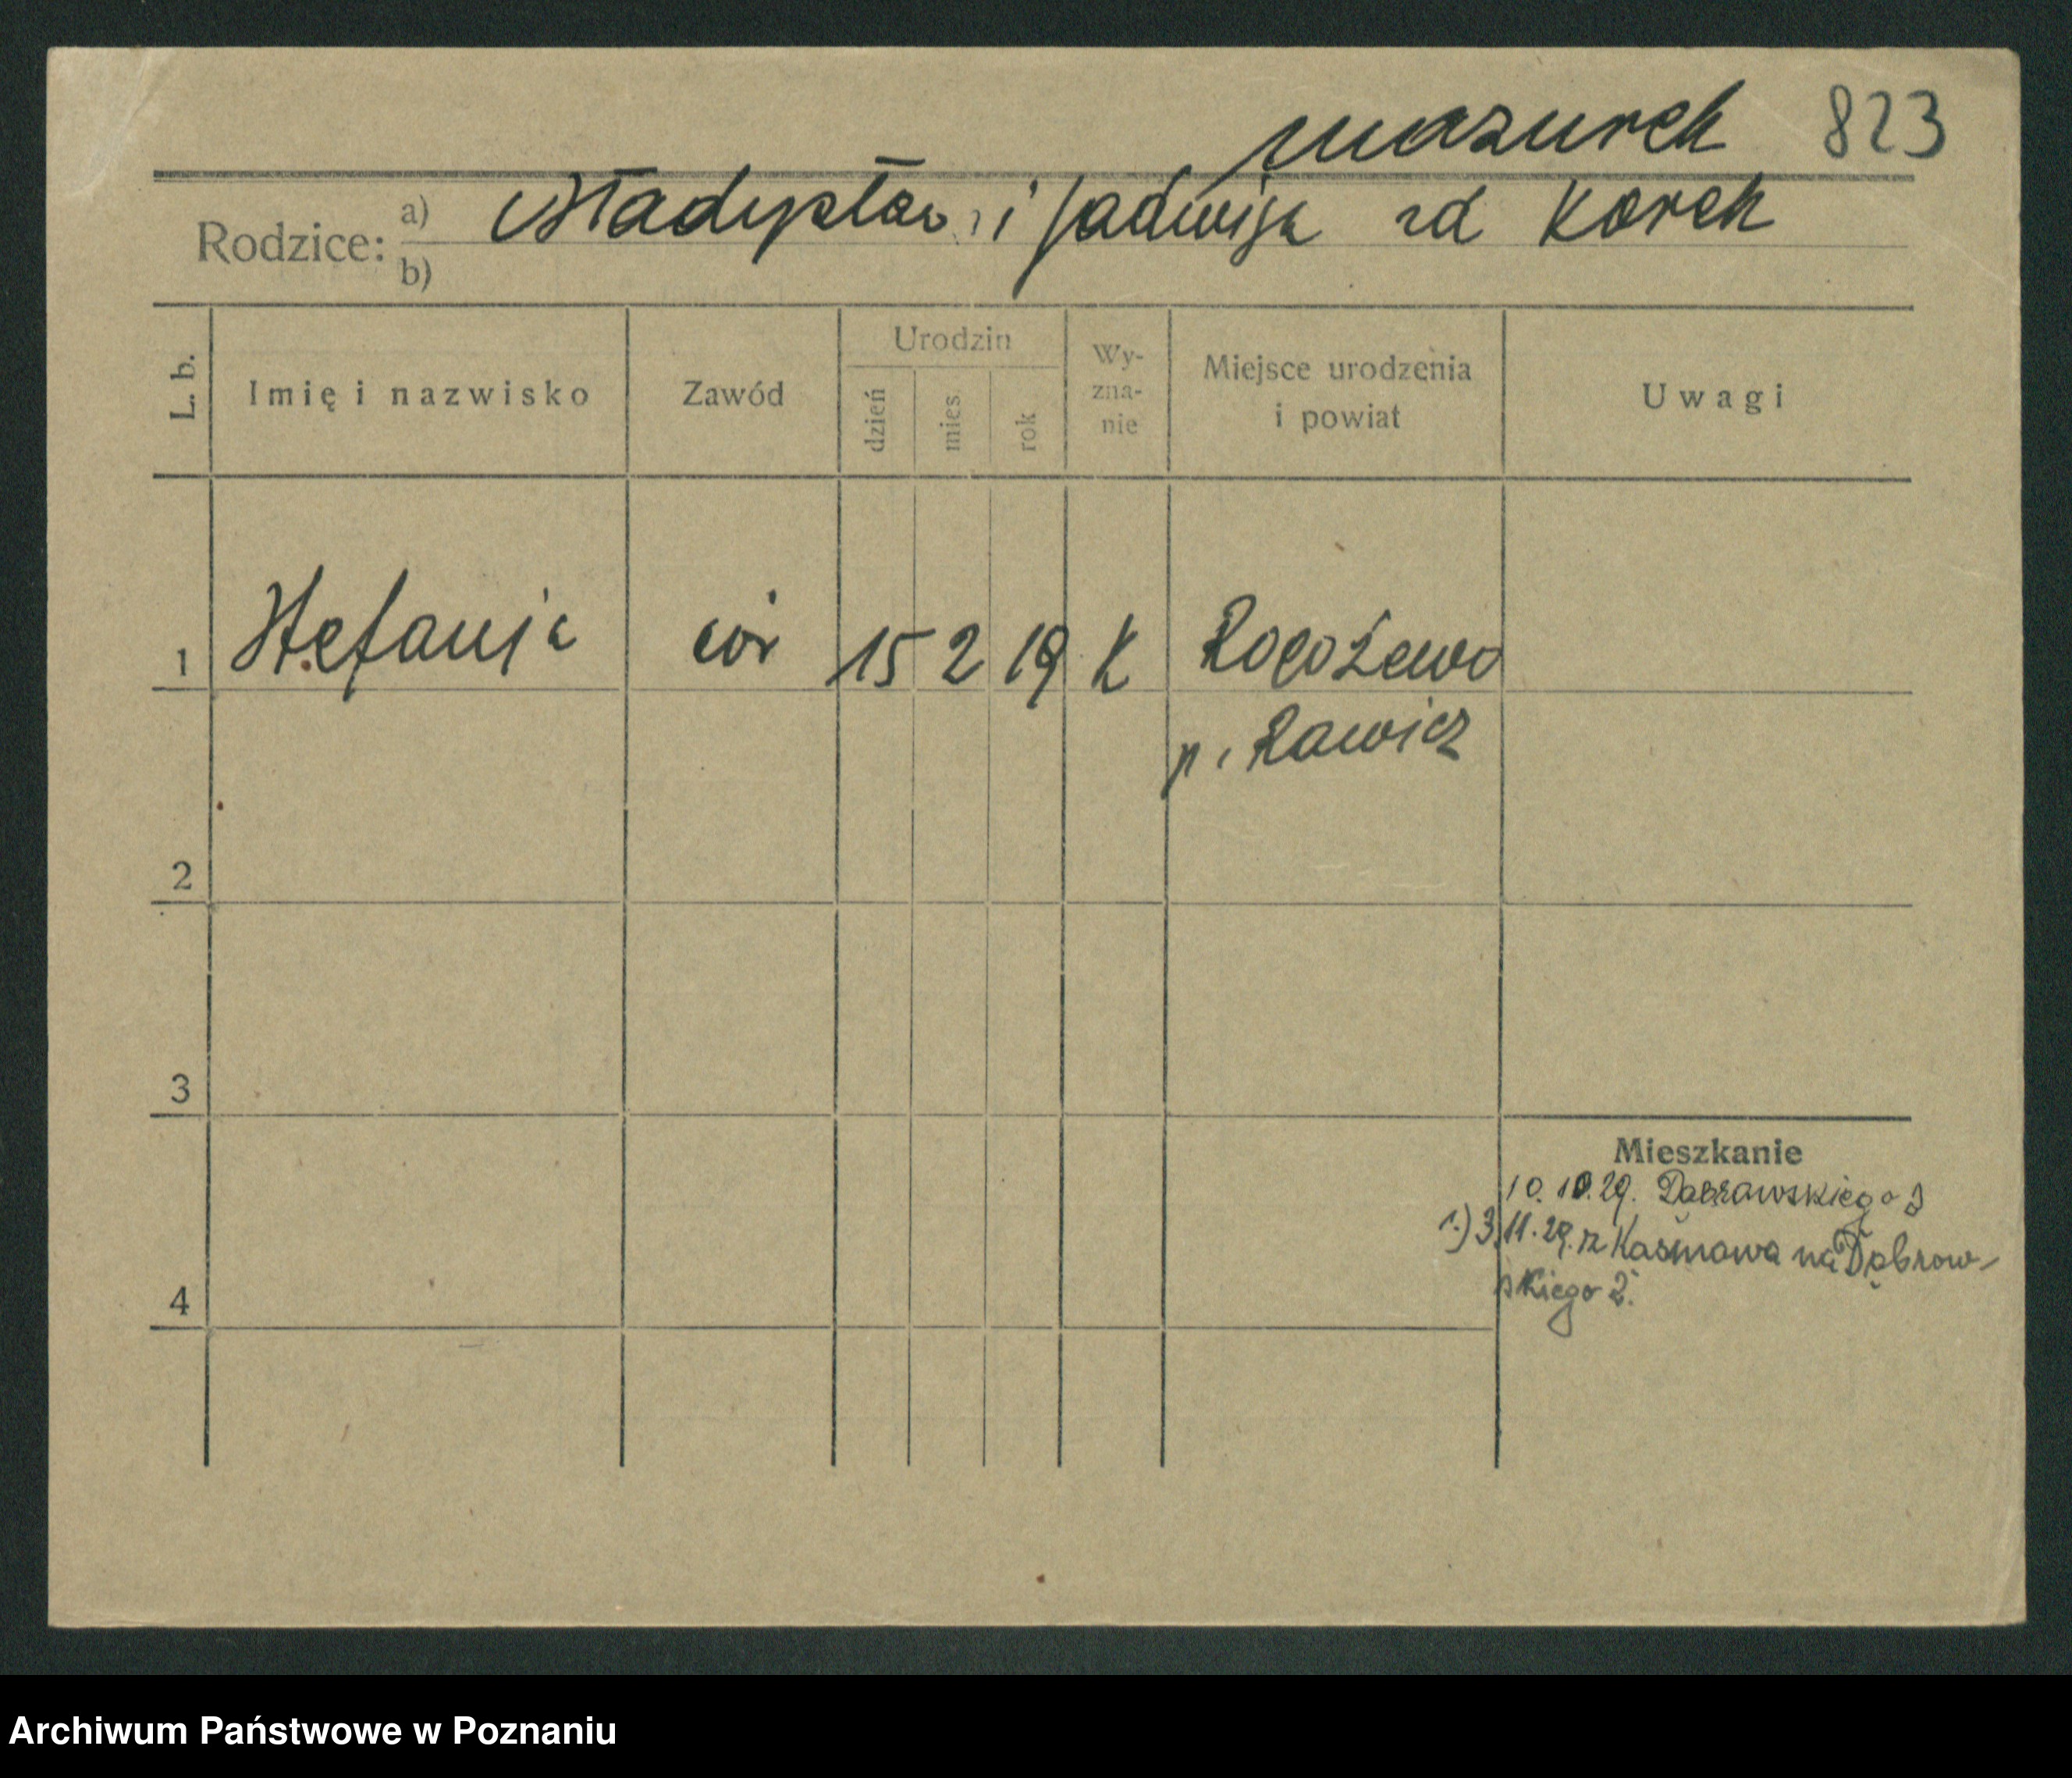 Mazurek 823
Rodzice: a) Władysław i Jadwiga zd Korek
b)
L. b. Imię i nazwisko Zawód Urodzin dzień mies. rok Wy-zna-nie Miejsce urodzenia i powiat Uwagi
1 Stefania cór 15 2 19 K Rogożewo
p. Rawicz
2
3
Mieszkanie
10.10.29. Dąbrowskiego
1.) 3.11.29. z Kaśmowa na Dąbrow-
skiego 2.
4
Archiwum Państwowe w Poznaniu